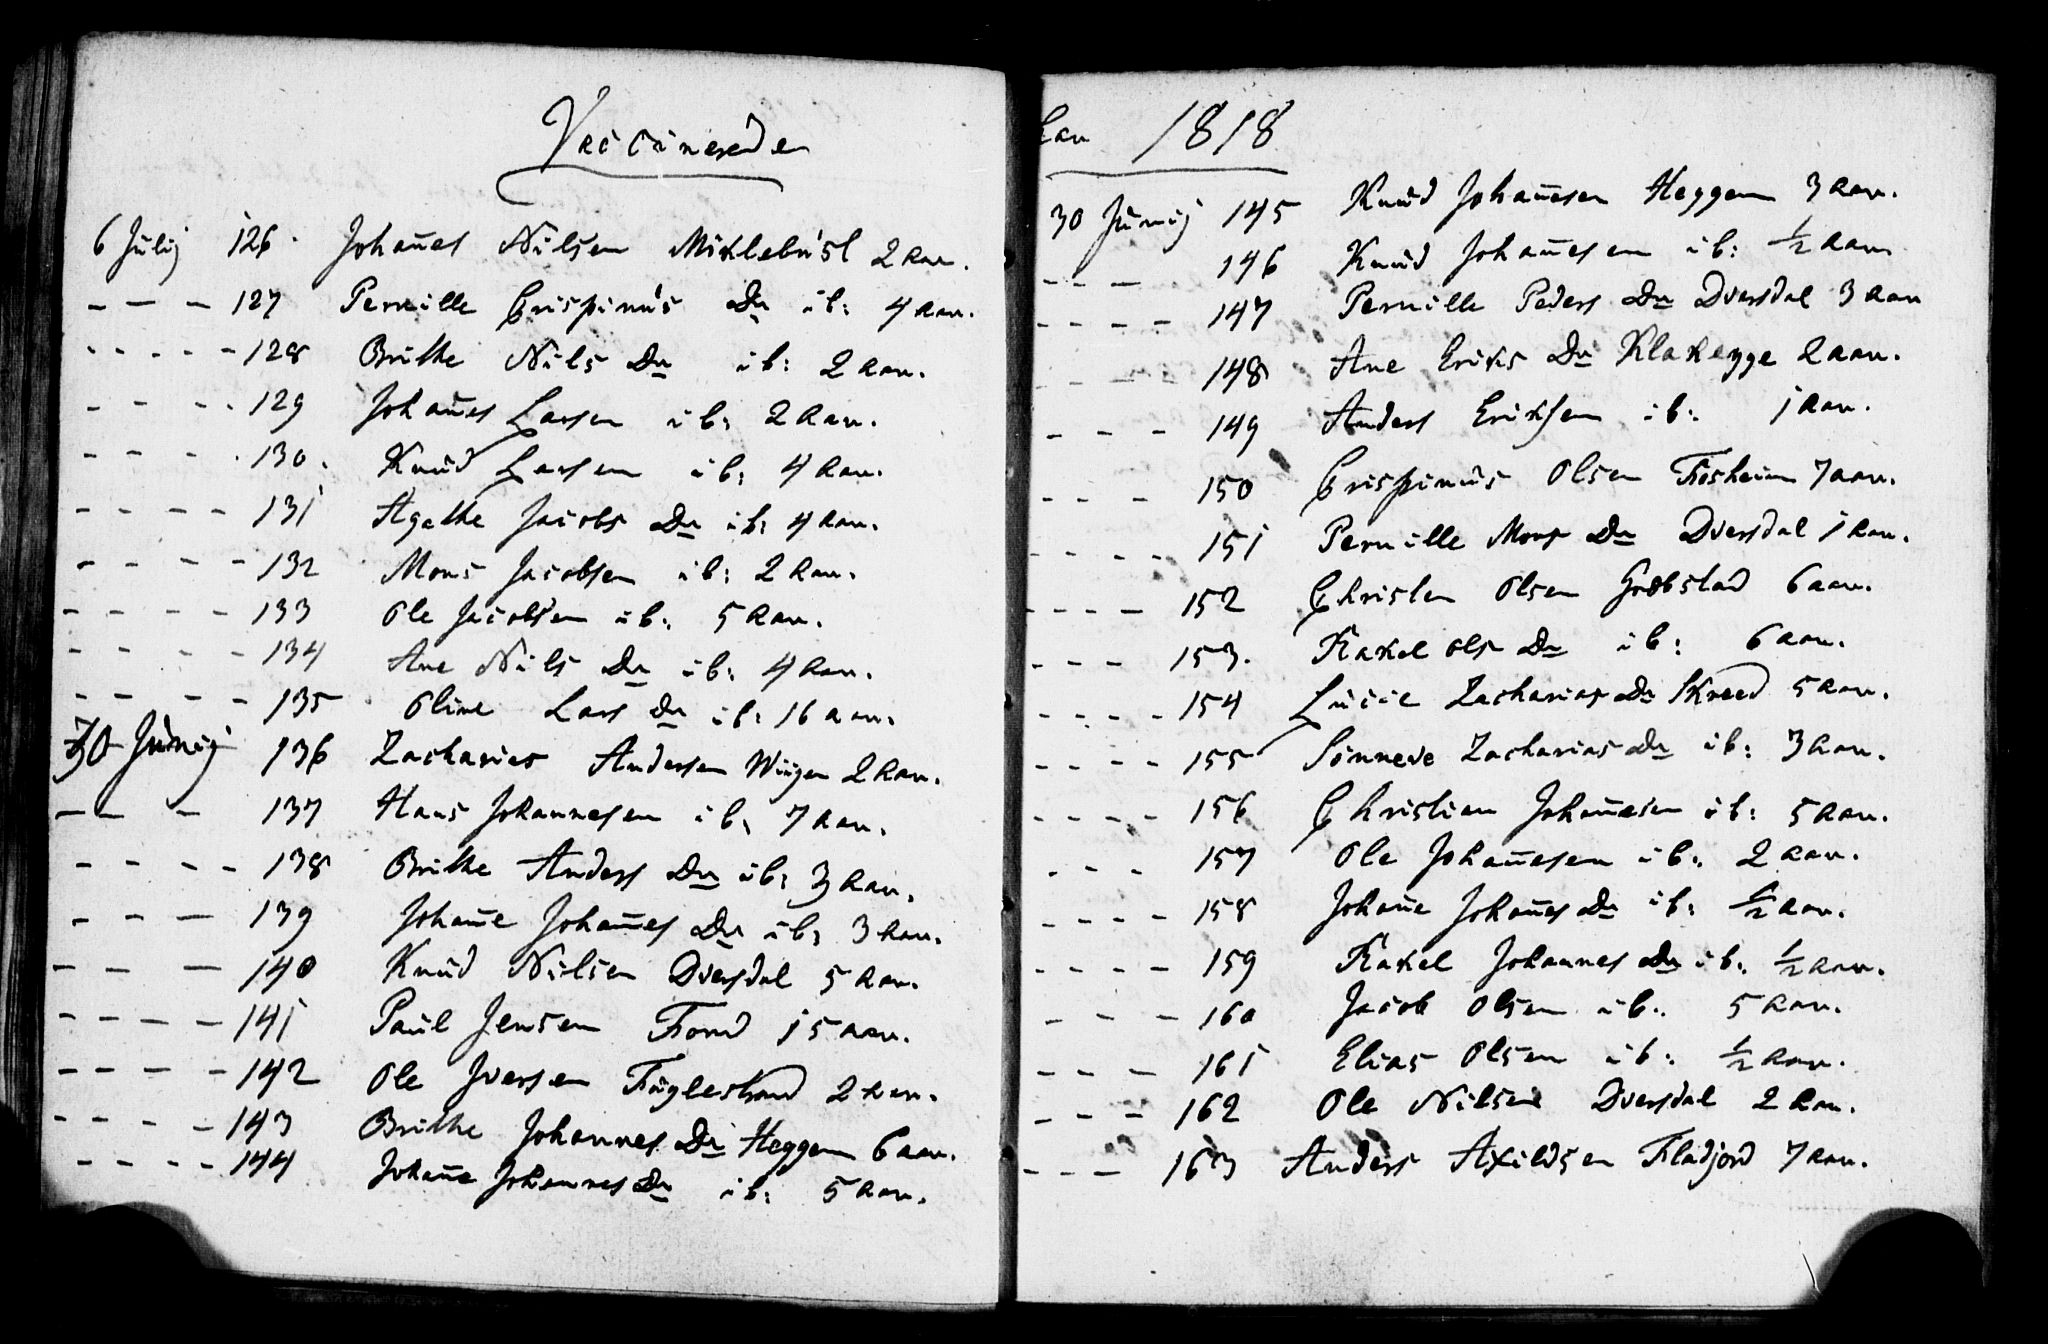 Vaccinerede
6 Julij 126. Johanes Nilsen Mixlebust 2 aar.
- - - 127 Pernille Crispinus Dr ib: 4 aar.
- - - - 128 Brithe Nils Dr ib: 2 aar.
- - - - 129 Johanes Larsen ib: 2 aar.
- - - - 130. Knud Larsen ib: 4 aar.
- - - - 131 Agethe Jacobs Dr ib: 4 aar.
- - - - 132 Mons Jacobsen ib: 2 aar.
- - - - 133 Ole Jacobsen ib: 5 aar.
- - - - 134 Ane Nils Dr ib: 4 aar.
- - - - 135 Oline Lars Dr ib: 16 aar.
30 Junij 136 Zacharias Andersen Wiigen 2 aar.
- - - 137 Hans Johannesen ib: 7 aar.
- - - - 138 Brithe Anders Dr ib: 3 aar.
- - - 139 Johane Johanes Dr ib: 3 aar.
- - - 140 Knud Nilsen Dversdal 5 aar.
- - - - 141 Paul Jensen Fond 15 aar.
- - - - 142 Ole Iversen Fuglestrand 2 aar.
- - - - 143 Brithe Johannes Dr Heggen 6 aar.
- - - - 144 Johane Johannes Dr ib: 5 aar.
aar 1818
30 Junij 145 Knud Johanesen Heggen 3 aar.
- - - 146 Knud Johanesen ib: 1/2 aar
- - - - 147 Pernille Peders Dr Dversdal 3 aar
- - - 148 Ane Erixs Dr Klakegge 2 aar.
- - - 149 Anders Erixsen ib: 1 aar.
- - - 150 Crispinus Olsen Fosheim 7 aar.
- - - - 151 Pernille Mons Dr Dversdal 1 aar.
- - - - 152 Christen Olsen Grobstad 6 aar.
- - - 153. Raxel Ols Dr ib: 6 aar.
- - - - 154 Lucie Zacharias Dr Skreed 5 aar.
- - - - 155 Sönneve Zacharias Dr ib: 3 aar.
- - - - 156 Christian Johanesen ib: 5 aar.
- - - 157 Ole Johanesen ib: 2 aar.
- - - - 158 Johane Johanes Dr ib: 1/2 aar.
- - - - 159 Raxel Johannes Dr ib: 1/2 aar.
- - - 160 Jacob Olsen ib: 5 aar.
- - - 161 Elias Olsen ib: 1/2 aar.
- - - 162 Ole Nilsen Dversdal 2 aar.
- - - 163 Anders Axeldsen Fladjord 7 aar.